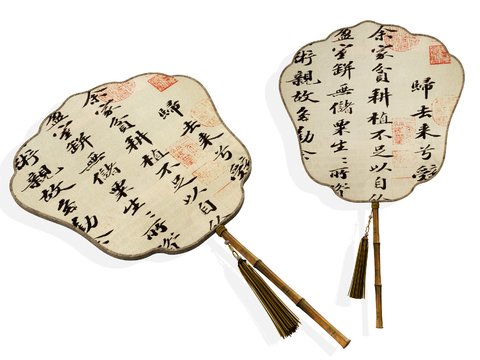 歸去来兮辭
余家貧耕植不足以自
盈室缾無儲粟生〻所資
術親故多勸
歸去来兮辭
余家貧耕植不足以自
盈室缾無儲粟生〻所資
術親故多勸